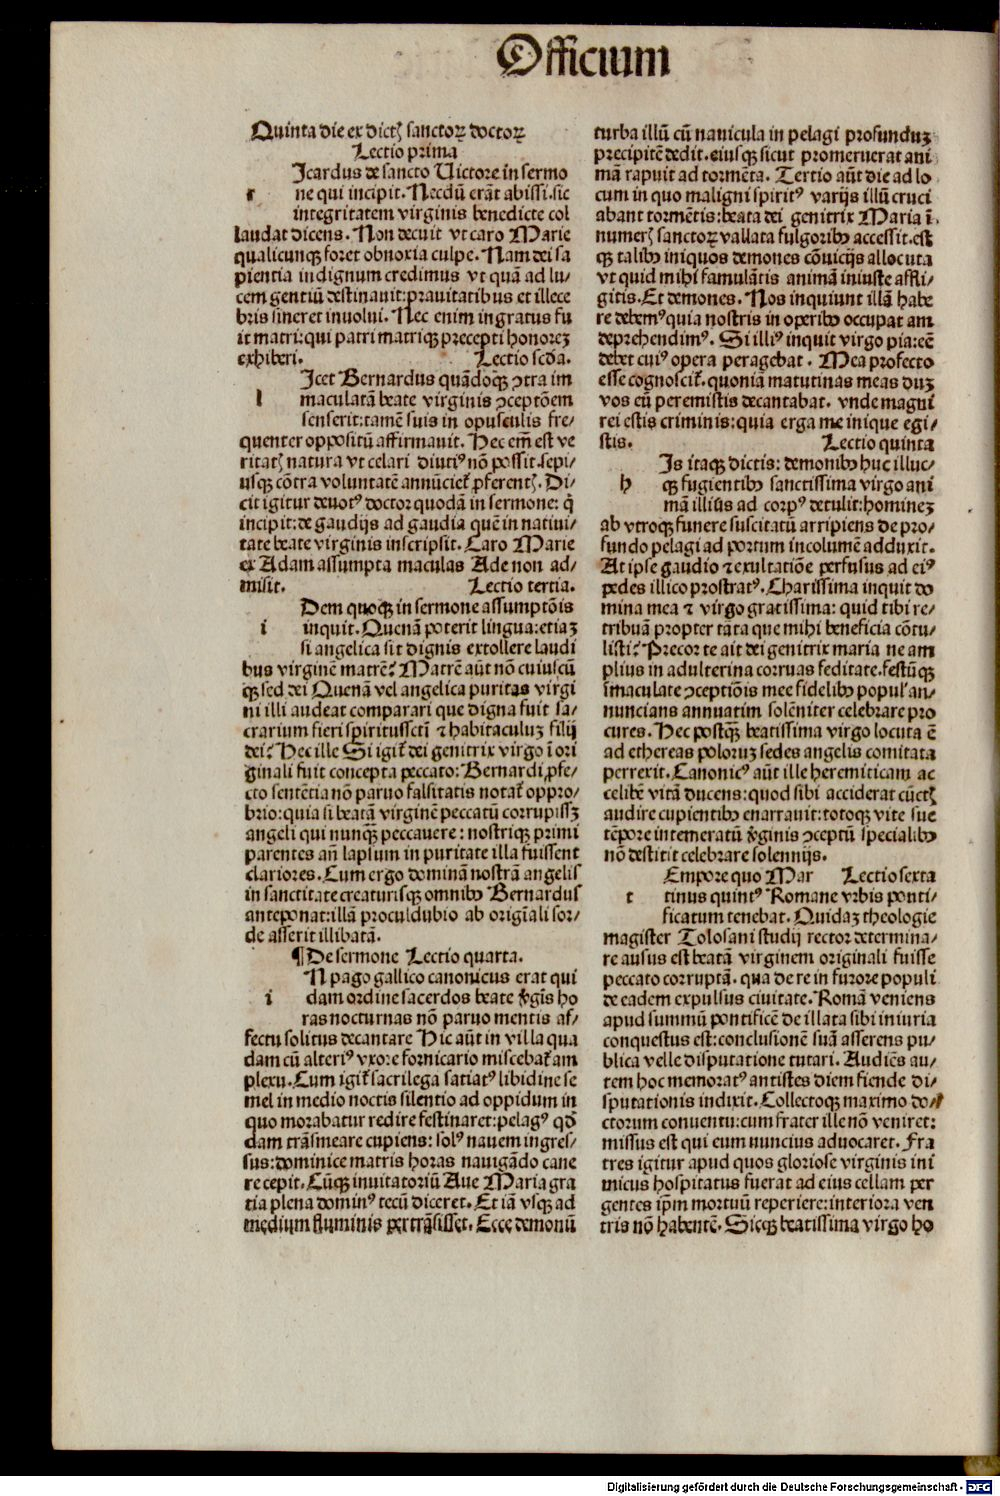 Officium
Quinta die ex dictꝭ sanctoꝝ doctoꝝ
Lectio prima
r Icardus de sancto Uictore in sermo
ne qui incipit. Necdū erāt abissi. sic
integritatem virginis benedicte col
laudat dicens. Non decuit vt caro Marie
qualicunqꝫ foret obnoxia culpe. Nam dei sa
pientia indignum credimus vt quā ad lu/
cem gentiū destinauit: prauitatibus et illece
bris sineret inuolui. Nec enim ingratus fu
it matri: qui patri matriqꝫ precepti honoreꝫ
exhiberi. Lectio scđa.
l Icet Bernardus quādoqꝫ ꝯtra im
maculatā beate virginis ꝯceptōem
senserit: tamē suis in opusculis fre/
quenter oppositū affirmauit. Hec em̄ est ve
ritatꝭ natura vt celari diutiꝰ nō possit. sepi/
usqꝫ cōtra voluntatē annūciet̄ ꝓferentꝭ. Di/
cit igitur deuotꝰ doctor quodā in sermone: q̄
incipit: de gaudijs ad gaudia quē in natiui/
tate beate virginis inscripsit. Caro Marie
ex Adam assumpta maculas Ade non ad/
misit. Lectio tertia.
i Dem quoqꝫ in sermone assumptōis
inquit. Quenā poterit lingua: etiaꝫ
si angelica sit dignis extollere laudi
bus virginē matrē? Matrē aūt nō cuiuscū
qꝫ sed dei Quenā vel angelica puritas virgi
ni illi audeat comparari que digna fuit sa/
crarium fieri spiritussctī ⁊ habitaculuꝫ filij
dei? Hec ille Si igit̄ dei genitrix virgo ī ori
ginali fuit concepta peccato: Bernardi ꝓfe/
cto sentētia nō paruo falsitatis notat̄ oppro/
brio: quia si beatā virginē peccatū corrupissꝫ
angeli qui nunqꝫ̄ peccauere: nostriqꝫ primi
parentes an̄ lapsum in puritate illa fuissent
clariores. Cum ergo dominā nostrā angelis
in sanctitate creaturisqꝫ omnibꝰ Bernardus
anteponat: illā proculdubio ab origīali sor/
de asserit illibatā.
¶ De sermone Lectio quarta.
i N pago gallico canonicus erat qui
dam ordine sacerdos beate v̄gīs ho
ras nocturnas nō paruo mentis af/
fectu solitus decantare Hic aūt in villa qua
dam cū alteriꝰ vxore fornicario miscebat̄ am
plexu. Cum igit̄ sacrilega satiatꝰ libidine se
mel in medio noctis silentio ad oppidum in
quo morabatur redire festinaret: pelagꝰ qđ
dam trāsmeare cupiens: solꝰ nauem ingres/
sus: dominice matris horas nauigādo cane
re cepit. Cūqꝫ inuitatoriū Aue Maria gra
tia plena dominꝰ tecū diceret. Et iā vsqꝫ ad
medium fluminis pertrāsisset. Ecce demonū
turba illū cū nauicula in pelagi profunduꝫ
precipitē dedit. eiusqꝫ sicut promeruerat ani
mā rapuit ad tormēta. Tertio aūt die ad lo
cum in quo maligni spiritꝰ varijs illū cruci
abant tormētis: beata dei genitrix Maria ī
numerꝭ sanctoꝝ vallata fulgoribꝰ accessit. est
qꝫ talibꝰ iniquos demones cōuicijs allocuta
vt quid mihi famulātis animā iniuste affli/
gitis. Et demones. Nos inquiunt illā habe
re debemꝰ quia nostris in operibꝰ occupatam
deprehendimꝰ. Si illiꝰ inquit virgo pia: eē
debet cuiꝰ opera peragebat. Mea profecto
esse cognoscit̄. quoniā matutinas meas duꝫ
vos eū peremistis decantabat. vnde magni
rei estis criminis: quia erga me inique egi/
stis. Lectio quinta
h Is itaqꝫ dictis: demonibꝰ huc illuc/
qꝫ fugientibꝰ sanctissima virgo ani
mā illius ad corpꝰ detulit: homineꝫ
ab vtroqꝫ funere suscitatū arripiens de pro/
fundo pelagi ad portum incolumē adduxit.
At ipse gaudio ⁊ exultatiōe perfusus ad eiꝰ
pedes illico prostratꝰ. Charissima inquit do
mina mea ⁊ virgo gratissima: quid tibi re/
tribuā propter tāta que mihi beneficia cōtu/
listi? Precor te ait dei genitrix maria ne am
plius in adulterina corruas feditate. festūqꝫ
īmaculate ꝯceptiōis mee fidelibꝰ populꝰ an/
nuncians annuatim solēniter celebrare pro
cures. Hec postqꝫ̄ beatissima virgo locuta ē
ad ethereas poloruꝫ sedes angelis comitata
perrexit. Canonicꝰ aūt ille heremiticam ac
celibē vitā ducens: quod sibi acciderat cūctꝭ
audire cupientibꝰ enarrauit: totoqꝫ vite sue
tēpore intemeratū v̄ginis ꝯceptū specialibꝰ
nō destitit celebrare solennijs.
t Empore quo Mar Lectio sexta
tinus quintꝰ Romane vrbis ponti/
ficatum tenebat. Quidaꝫ theologie
magister Tolosani studij rector determina/
re ausus est beatā virginem originali fuisse
peccato corruptā. qua de re in furore populi
de eadem expulsus ciuitate. Romā veniens
apud summū pontificē de illata sibi iniuria
conquestus est: conclusionē suā asserens pu/
blica velle disputatione tutari. Audiēs au/
tem hoc memoratꝰ antistes diem fiende di/
sputationis indixit. Collectoqꝫ maximo do/
ctorum conuentu: cum frater ille nō veniret:
missus est qui eum nuncius aduocaret. Fra
tres igitur apud quos gloriose virginis ini
micus hospitatus fuerat ad eius cellam per
gentes ip̄m mortuū reperiere: interiora ven
tris nō habentē. Sicqꝫ beatissima virgo ho
Digitalisierung gefördert durch die Deutsche Forschungsgemeinschaft - DFG